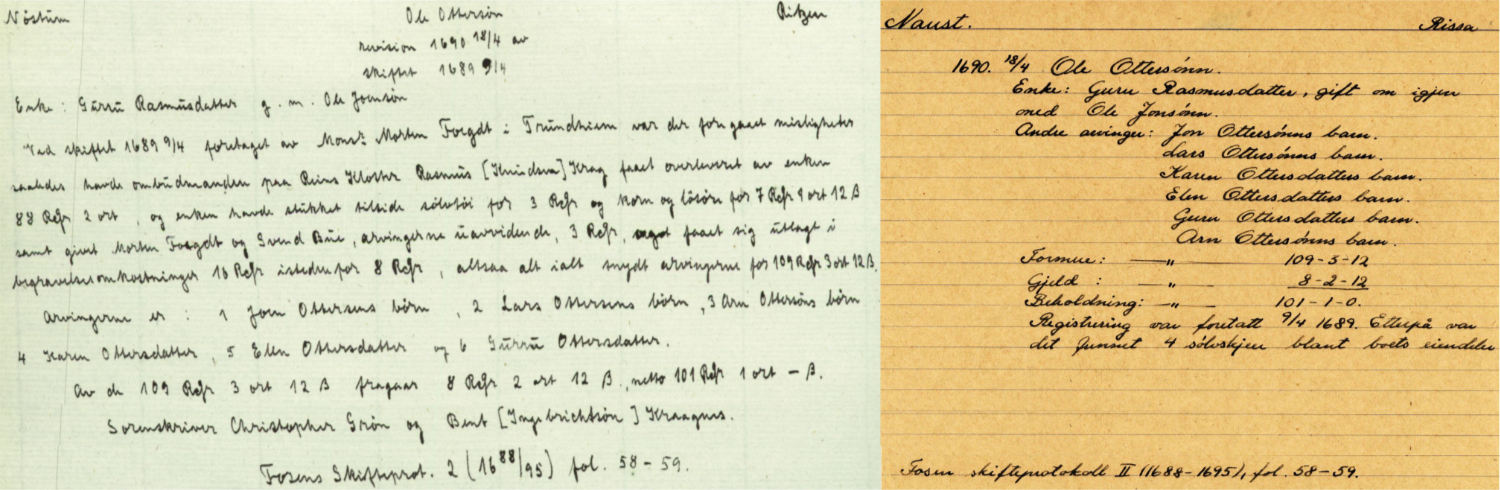 Nöstum Ole Ottersön Ritzen
revision 1690 18/4 av
skiftet 1689 9/4
Enke: Gurru Rasmusdatter g. m. Ole Joensön
Ved skiftet 1689 9/4 foretaget av Monsr Morten Foegdt i Trundhiem var der foregaaet misligheter
saaledes havde ombudmanden paa Reins Kloster Rasmus [Knudsen] Krag faaet overleveret av enken
88 Rdlr 2 ort, og enken havde stukket tilside sölvtöi for 3 Rdlr og korn og lösöre for 7 Rdlr 1 ort 12 β
samt givet Morten Foegdt og Svend Bue, arvingerne uavvidende, 3 Rdlr, faaet sig utlagt i
begravelsesomkostninger 18 Rdlr istedenfor 8 Rdlr, altsaa alt ialt snydt arvingerne for 109 Rdlr 3 ort 12 β.
Arvingerne er: 1 Joen Ottersens börn, 2 Lars Ottersens börn, 3 Arn Ottersöns börn
4 Karen Ottersdatter, 5 Elen Ottersdatter og 6 Gurru Ottersdatter.
Av de 109 Rdlr 3 ort 12 β fragaar 8 Rdlr 2 ort 12 β, netto 101 Rdlr 1 ort - β.
Sorenskriver Christopher Grön og Bent [Ingebrichtsön] Kraagnes.
Fosens Skifteprot. 2 (1688/95) fol. 58-59.
Naust. Rissa
1690. 18/4 Ole Ottersönn.
Enke: Guru Rasmusdatter, gift om igjen
med Ole Jonsönn.
Andre arvinger: Jon Ottersönns barn.
Lars Ottersönns barn.
Karen Ottersdatters barn.
Elen Ottersdatters barn.
Guru Ottersdatters barn.
Arn Ottersönns barn.
Formue: — " — 109-3-12
Gjeld: — " — 8-2-12
Beholdning: — " — 101-1-0.
Registrering var foretatt 9/4 1689. Etterpå var
det funnet 4 sölvskjeer blant boets eiendeler
Fosen skifteprotokoll II (1688-1695), fol. 58-59.